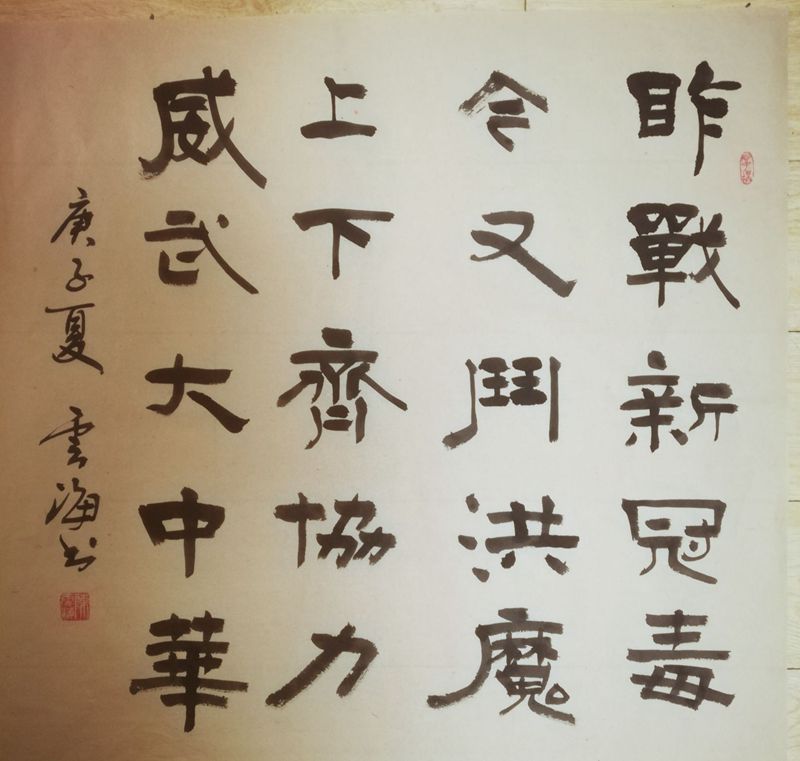 昨戰新冠毒
今又鬥洪魔
上下齊協力
威武大中華
庚子夏 雲海书